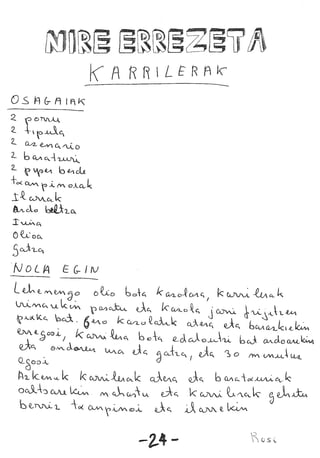 NIRE ERREZETA
KARRILERAK
OSAGAIAK
2 porru
2 tipula
2 azenario
2 baratzuri
2 piper berde
txanpinoiak
Ilarrak
Ardo beltza
Iriña
Olioa
Gatza
NOLA EGIN
Lehenengo olio bota kazolara, karrilerak
irinarekin pasatu eta kazola jarri frijitzen
pixka bat. Gero kazolatik atera eta barazkiekin
erregosi, karrilera bota edalontzi bat ardoarekin
eta ondoren ura eta gatza, eta 30 minutuz
egosi
Azkenik karrilerak atera eta baratxuriak
saltsarekin nahastu eta karrilerak gehitu
berriz txanpinoi eta ilarrekin
-24-
Rosi